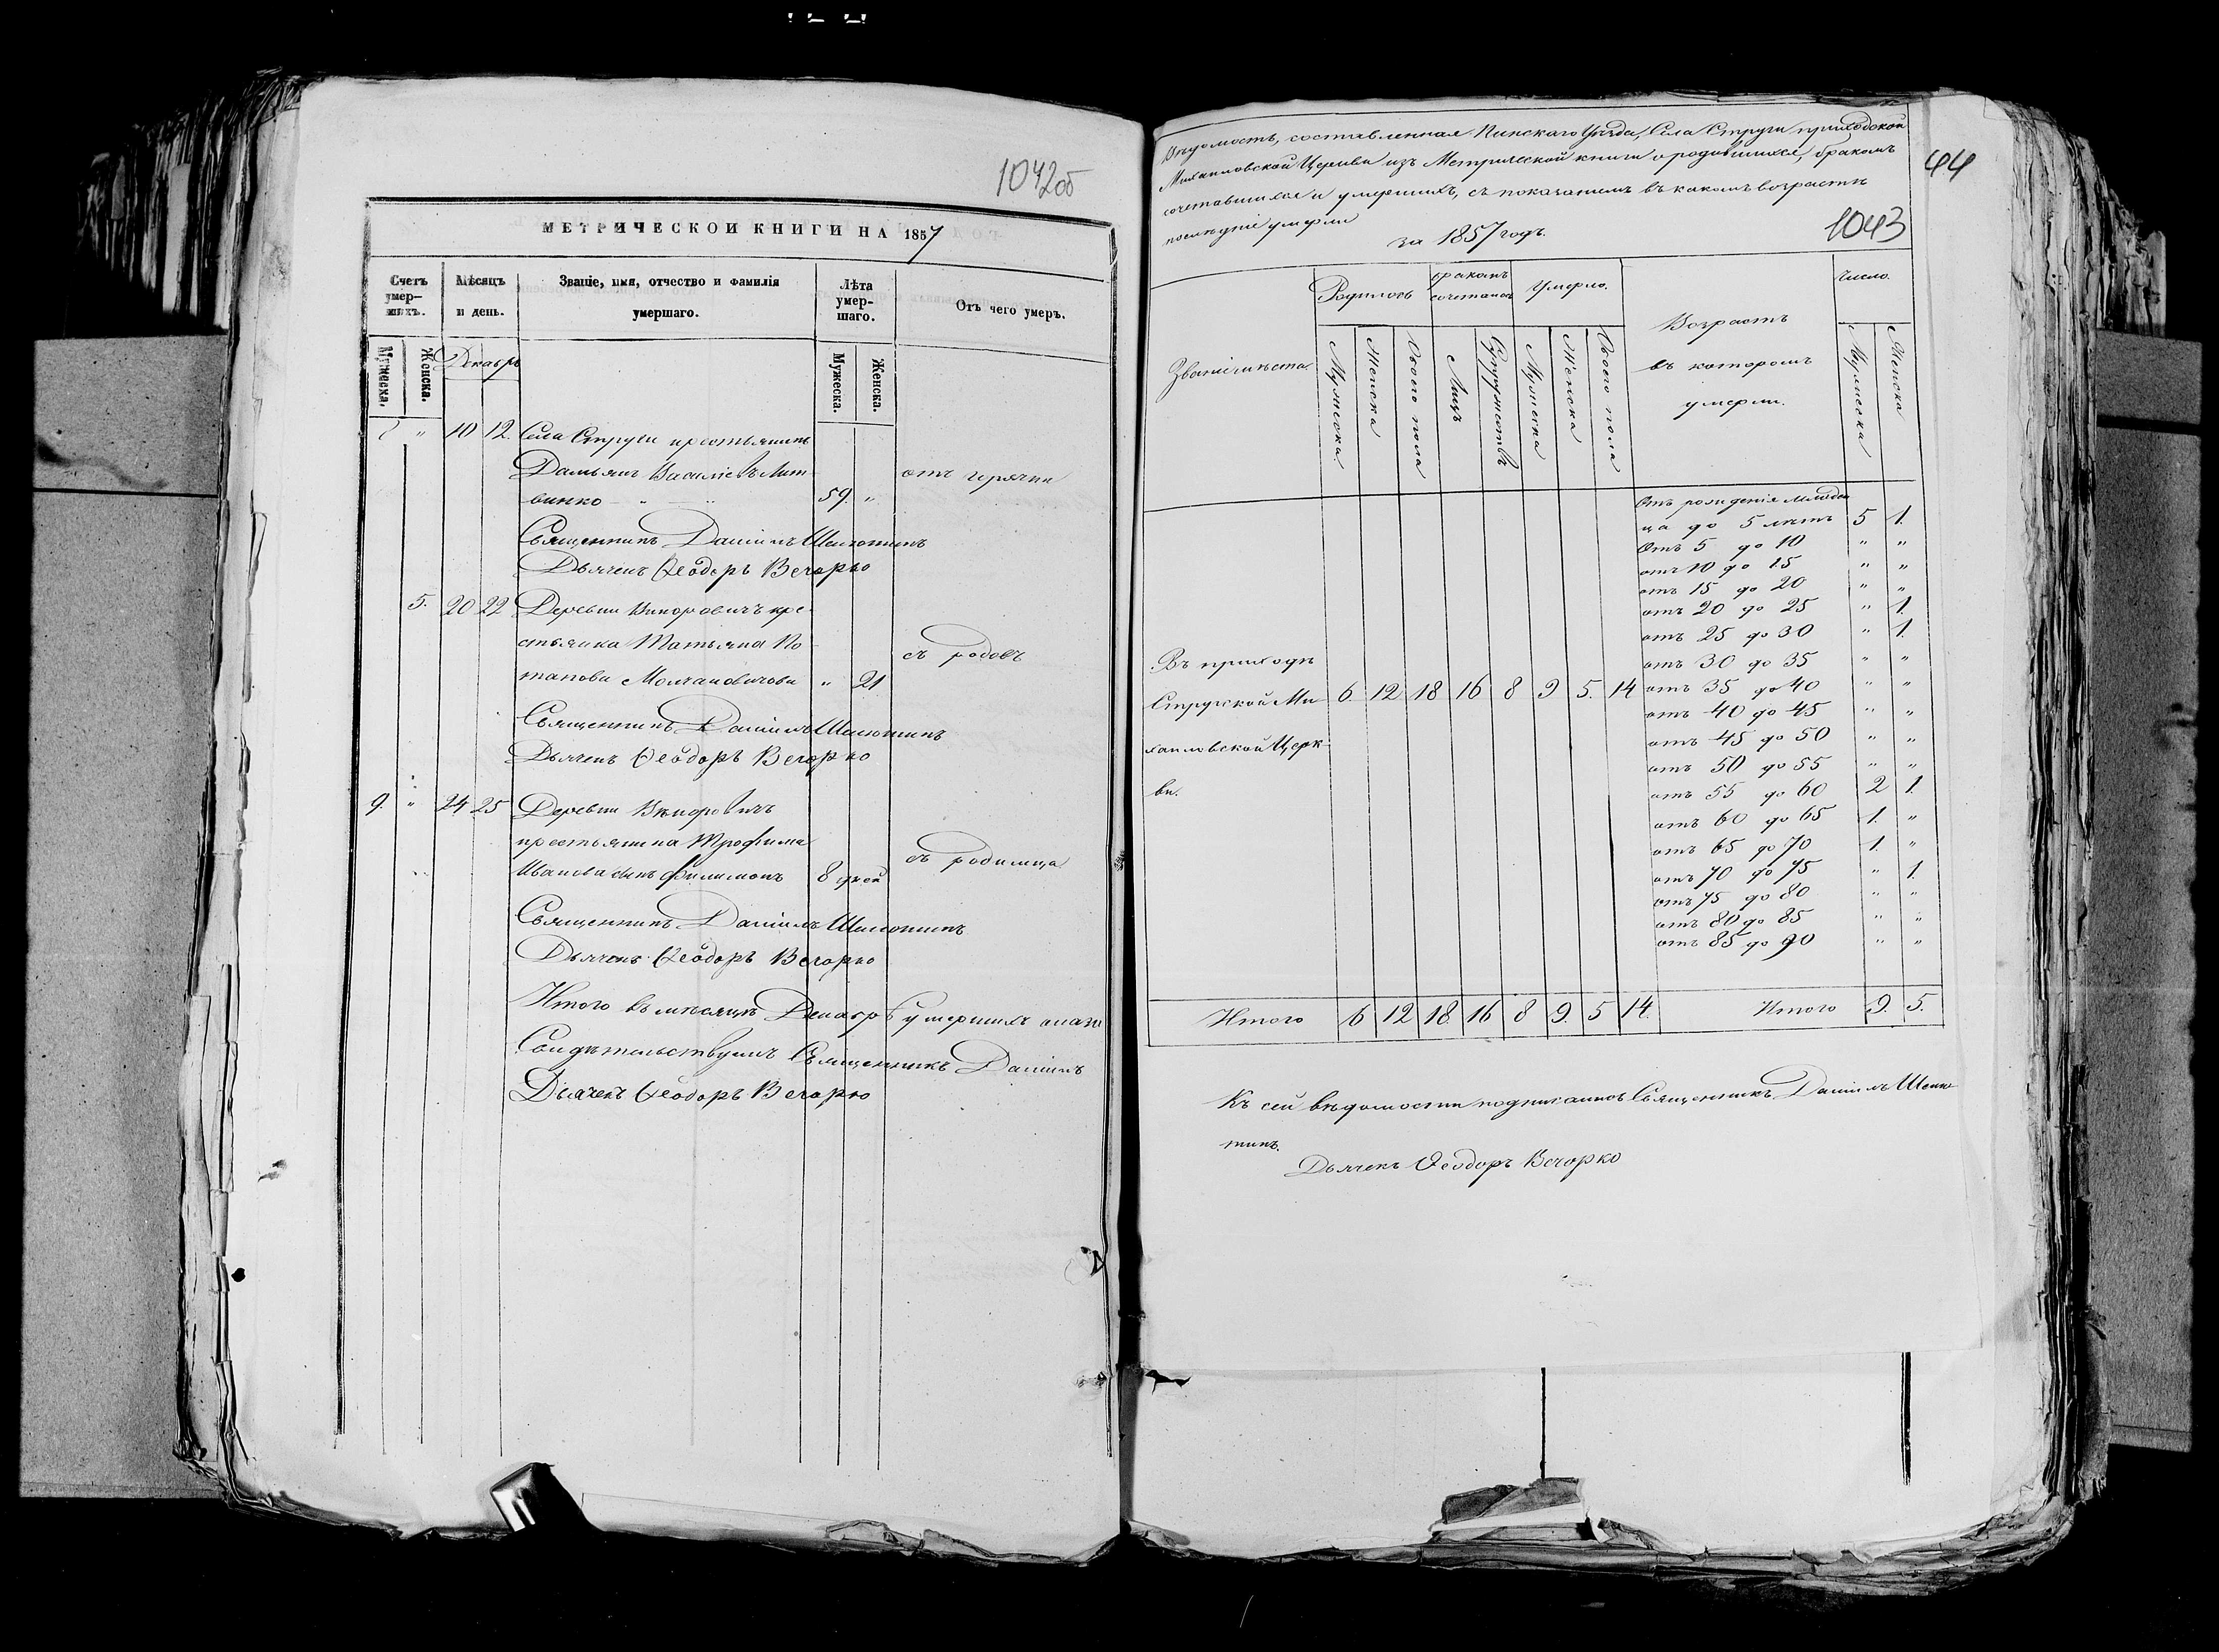 1042об
МЕТРИЧЕСКОЙ КНИГИ НА 1857
Счетъ умер-шихъ. Мѣсяцъ и день. Званіе, имя, отчество и фамилія умершаго. Лѣта умер-шаго. Отъ чего умеръ.
Мужеска. Женска. Декабрь Мужеска. Женска.
8 " 10 12. Села Струги крестьянинъ
Дамьянъ Василіевъ Лит-
винко " " 59. " отъ горячки
Священникъ Даніилъ
Дьячекъ Ѳеодоръ Вечорко
5. 20 22 Деревни Викоровичъ кре-
стьянка Татьяна По-
тапова Молчановичова " 21 съ родовъ
Священникъ Даніилъ
Дьячекъ Ѳеодоръ Вечорко
9. " 24 25 Деревни
крестьянина Трофима
Иванова сынъ Филимонъ 8 дней съ родимца
Священникъ Даніилъ
Дьячекъ Ѳеодоръ Вечорко
Итого въ мѣсяцѣ Декабрѣ умершихъ
Свидѣтельствуютъ Священникъ Даніилъ
Дьячекъ Ѳеодоръ Вечорко
44
Вѣдомость, составленная Пинскаго Уѣзда, Села Струги приходской
Михаиловской Церкви изъ Метрической книги о родившихся, бракомъ
сочетавшихся и умершихъ, съ показаніемъ въ какомъ возрастѣ
послѣдніе умерли
за 1857 годъ.
1043
Званіе мѣста. Родилось бракомъ сочеталось Умерло. Возрастъ въ которомъ умерли. Число.
Мужеска Женска Обоего пола Лицъ Супружествъ Мужеска Женска Обоего пола Мужеска Женска
Отъ рожденія младен-
ца до 5 лѣтъ 5 1.
Отъ 5 до 10 " "
отъ 10 до 15 " "
отъ 15 до 20 " "
отъ 20 до 25 " 1.
отъ 25 до 30 " 1.
Въ приходѣ отъ 30 до 35 " "
Стружской Ми- 6. 12 18 16 8 9 5. 14 отъ 35 до 40 " "
отъ 40 до 45 " "
хаиловской Церк- отъ 45 до 50 " "
отъ 50 до 55 " "
ви. отъ 55 до 60 2 1.
отъ 60 до 65 1. "
отъ 65 до 70 1. "
отъ 70 до 75 " 1.
отъ 75 до 80 " "
отъ 80 до 85 " "
отъ 85 до 90 " "
Итого 6 12 18. 16 8 9. 5 14. Итого 9. 5.
Къ сей вѣдомости подписались Священникъ Даніилъ
Дьячекъ Ѳеодоръ Вечорко